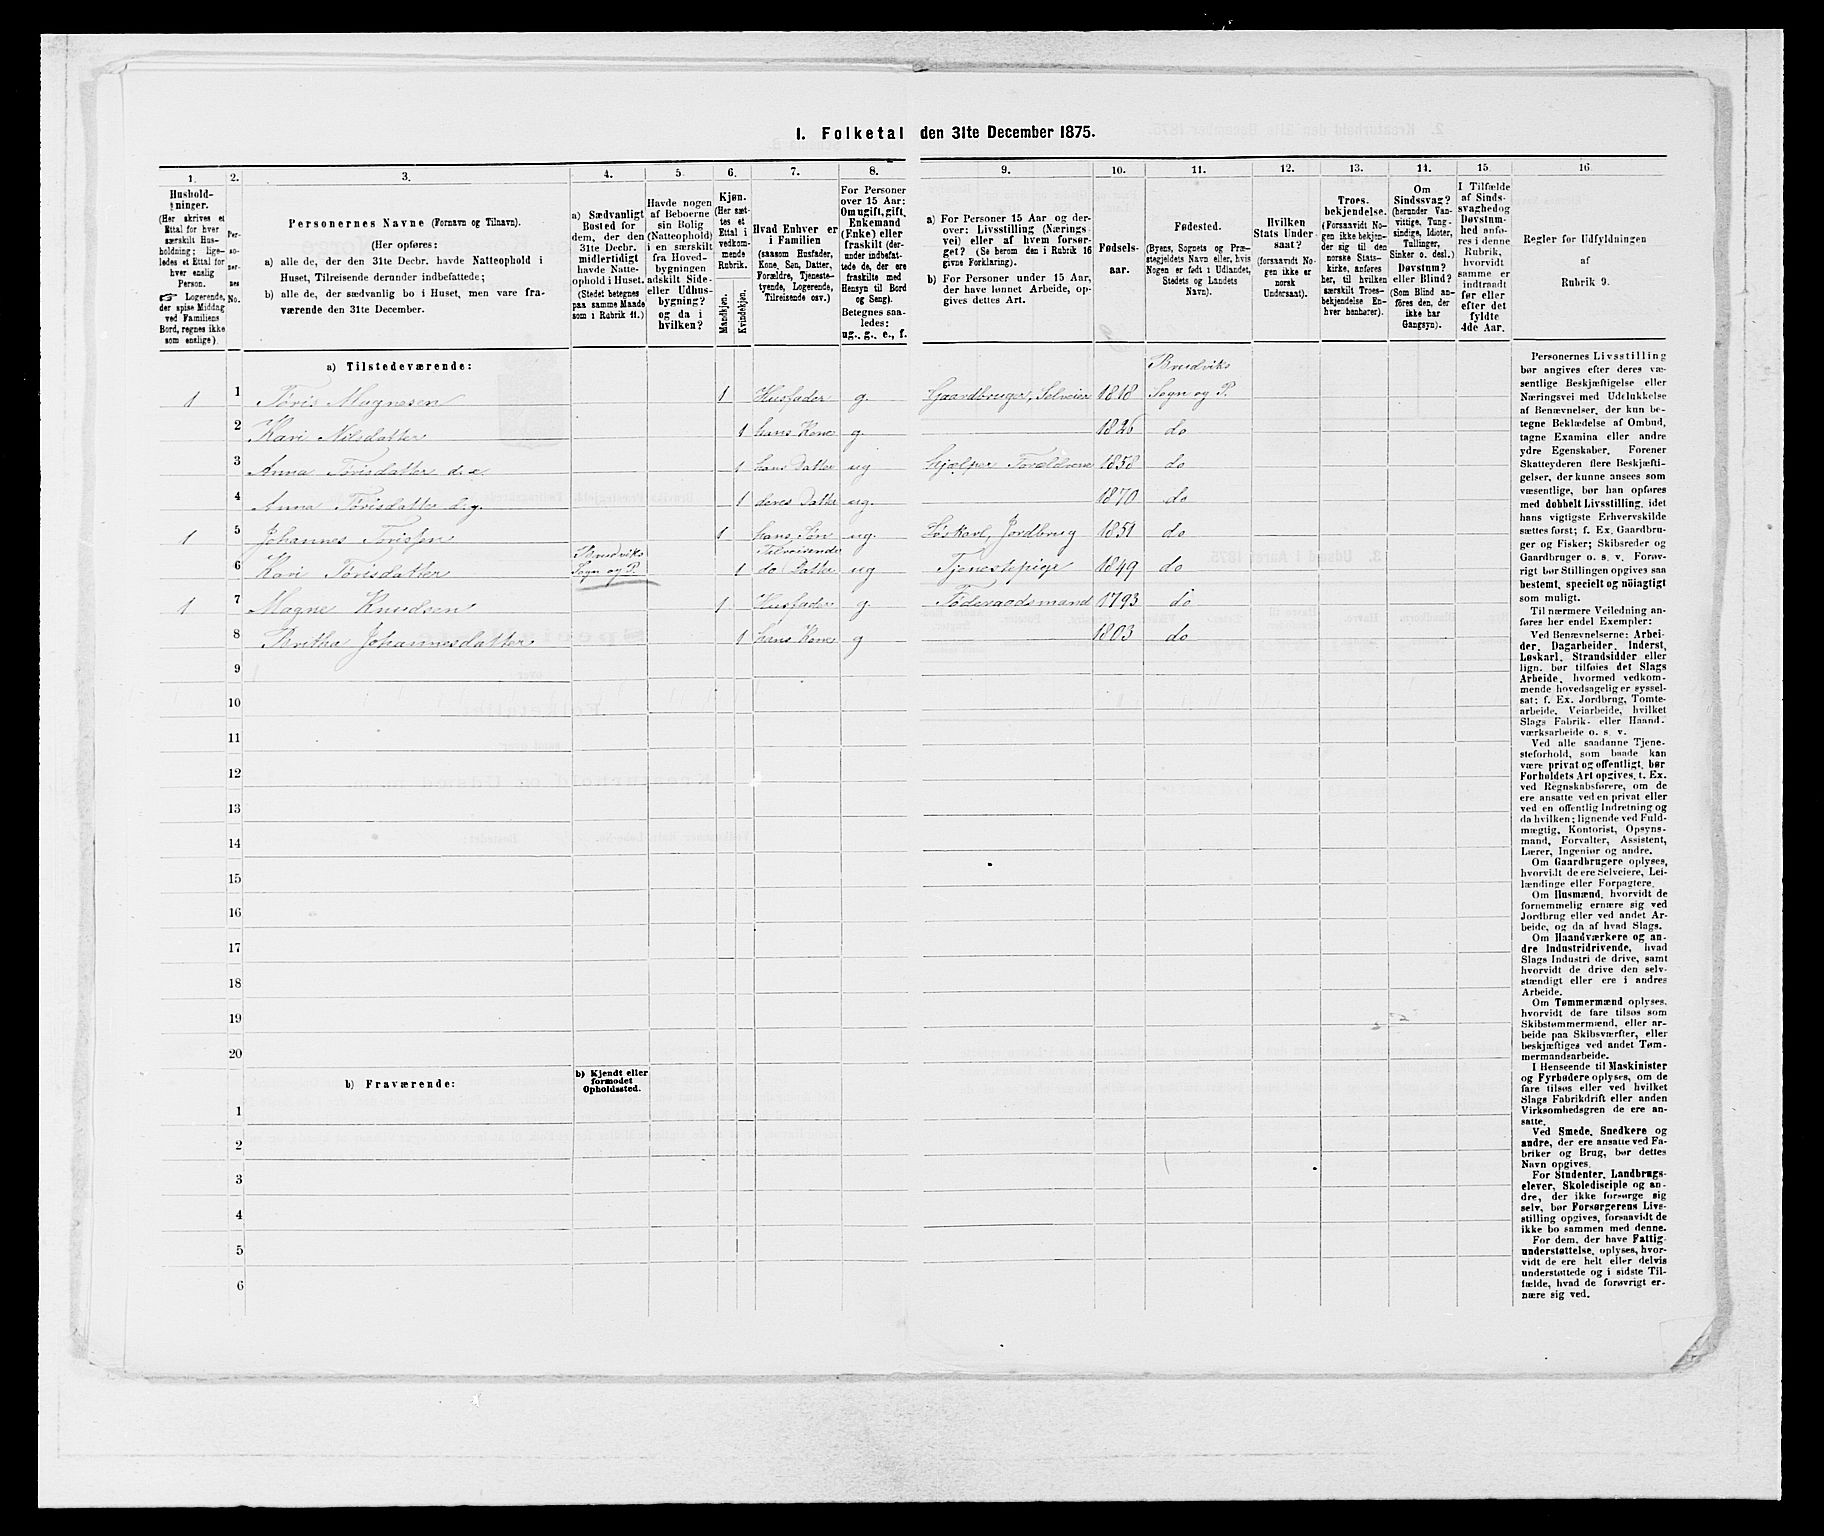 1. Folketal den 31te December 1875.
1.
Hushold-
ninger.
(Her skrives et
Ettal for hver
særskilt Hus-
holdning; lige-
ledes et Ettal for
hver enslig
Person.
☞ Logerende,
der spise Middag
ved Familiens
Bord, regnes ikke
som enslige).
2.
Per-
so-
ner-
nes
No.
3.
Personernes Navne (Fornavn og Tilnavn).
(Her opføres:
a) alle de, der den 31te Decbr. havde Natteophold i
Huset, Tilreisende derunder indbefattede;
b) alle de, der sædvanlig bo i Huset, men vare fra-
værende den 31te December.
4.
a) Sædvanligt
Bosted for
dem, der den
31te Decbr.
midlertidigt
havde Natte-
ophold i Huset.
(Stedet betegnes
paa samme Maade
som i Rubrik 11.)
5.
Havde nogen
af Beboerne
sin Bolig
(Natteophold)
i en særskilt
fra Hoved-
bygningen
adskilt Side-
eller Udhus-
bygning?
og da i
hvilken?
6.
Kjøn.
(Her sæt-
tes et
Ettal i
vedkom-
mende
Rubrik.
Mandkjøn.
Kvindekjøn.
7.
Hvad Enhver er
i Familien
(saasom Husfader,
Kone, Søn, Datter,
Forældre, Tjeneste-
tyende, Logerende,
Tilreisende osv.)
8.
For Personer
over 15 Aar:
Om ugift, gift,
Enkemand
(Enke) eller
fraskilt (der-
under indbefat-
tede de, der ere
fraskilte med
Hensyn til Bord
og Seng).
Betegnes saa-
ledes:
ug., g., e., f.
9.
a) For Personer 15 Aar og der-
over: Livsstilling (Nærings-
vei) eller af hvem forsør-
get? (Se herom den i Rubrik 16
givne Forklaring).
b) For Personer under 15 Aar,
der have lønnet Arbeide, op-
gives dettes Art.
10.
Fødsels-
aar.
11.
Fødested.
(Byens, Sognets og Præ-
stegjeldets Navn eller, hvis
Nogen er født i Udlandet,
Stedets og Landets
Navn).
12.
Hvilken
Stats Under-
saat?
(forsaavidt No-
gen ikke er
norsk
Undersaat).
13.
Troes-
bekjendelse.
(Forsaavidt No-
gen ikke bekjen-
der sig til den
norske Stats-
kirke, anføres
her, til hvilken
særskilt Troes-
bekjendelse En-
hver henhører).
14.
Om
Sindssvag?
(herunder Van-
vittige, Tung-
sindige, Idioter,
Tullinger,
Sinker o. desl.)
Døvstum?
eller Blind?
(Som Blind an-
føres den, der
ikke har
Gangsyn).
15.
I Tilfælde
af Sinds-
svaghed og
Døvstum-
hed anfø-
res i denne
Rubrik,
hvorvidt
samme er
indtraadt
før eller
efter det
fyldte
4de Aar.
16.
Regler for Udfyldningen
af
Rubrik 9.
a) Tilstedeværende:
Brudviks
1 1 Tøris Magnesen 1 Husfader g. Gaardbruger, Selveier 1818 Sogn og P.
2 Kari Nilsdatter 1 hans Kone g. 1826 do
3 Anna Tørisdatter d. e. 1 hans Datter ug hjælper Forældrene 1858 do
4 Anna Tørisdatter d. y. 1 deres Datter ug. 1870 do
1 5 Johannes Torisen 1 hans Søn ug. Løskarl, Jordbrug 1851 do
Brudviks Tilreisende
6 Kari Tørisdatter Sogn og P. 1 do Datter ug Tjenestepige 1849 do
1 7 Magne Knudsen 1 Husfader g. Føderaadsmand 1793 do
8 Britha Johannesdatter 1 hans Kone g 1803 do
9
10
11
12
13
14
15
16
17
18
19
20
b) Fraværende:
b) Kjendt eller
formodet
Opholdssted.
1
2
3
4
5
6
Personernes Livsstilling
bør angives efter deres væ-
sentlige Beskjæftigelse eller
Næringsvei med Udelukkelse
af Benævnelser, der kun be-
tegne Beklædelse af Ombud,
tagne Examina eller andre
ydre Egenskaber. Forener
Skatteyderen flere Beskjæfti-
gelser, der kunne ansees som
væsentlige, bør han opføres
med dobbelt Livsstilling, idet
hans vigtigste Erhvervskilde
sættes først; f. Ex. Gaardbru-
ger og Fisker; Skibsreder og
Gaardbruger o. s. v. Forøv-
rigt bør Stillingen opgives saa
bestemt, specielt og nøiagtigt
som muligt.
Til nærmere Veiledning an-
føres her endel Exempler:
Ved Benævnelserne: Arbei-
der, Dagarbeider, Inderst,
Løskarl, Strandsidder eller
lign. bør tilføies det Slags
Arbeide, hvormed vedkom-
mende hovedsagelig er syssel-
sat; f. Ex. Jordbrug, Tomte-
arbeide, Veiarbeide, hvilket
Slags Fabrik- eller Haand-
værksarbeide o. s. v.
Ved alle saadanne Tjene-
steforhold, som baade kan
være privat og offentligt, bør
Forholdets Art opgives, t. Ex.
ved Regnskabsførere, om de
ere ansatte ved en privat eller
ved en offentlig Indretning og
da hvilken; lignende ved Fuld-
mægtig, Kontorist, Opsyns-
mand, Forvalter, Assistent,
Lærer, Ingeniør og andre.
Om Gaardbrugere oplyses,
hvorvidt de ere Selveiere, Lei-
lændinge eller Forpagtere.
Om Husmænd, hvorvidt de
fornemmelig ernære sig ved
Jordbrug eller ved andet Ar-
beide, og da af hvad Slags.
Om Haandværkere og an-
dre Industridrivende, hvad
Slags Industri de drive, samt
hvorvidt de drive den selv-
stændigt eller ere i andres
Arbeide.
Om Tømmermænd oplyses,
hvorvidt de fare tilsøs som
Skibstømmermænd, eller ar-
beide paa Skibsværfter, eller
beskjæftiges ved andet Tøm-
mermandsarbeide.
I Henseende til Maskinister
og Fyrbødere oplyses, om de
fare tilsøs eller ved hvilket
Slags Fabrikdrift eller anden
Virksomhedsgren de ere an-
satte.
Ved Smede, Snedkere og
andre, der ere ansatte ved Fa-
briker og Brug, bør dettes
Navn opgives.
For Studenter, Landbrugs-
elever, Skoledisciple og an-
dre, der ikke forsørge sig
selv, bør Forsørgerens Livs-
stilling opgives, forsaavidt de
ikke bo sammen med denne.
For dem, der have Fattig-
understøttelse, oplyses, hvor-
vidt de ere helt eller delvis
understøttede og i sidste Til-
fælde, hvad de forøvrigt er-
nære sig ved.